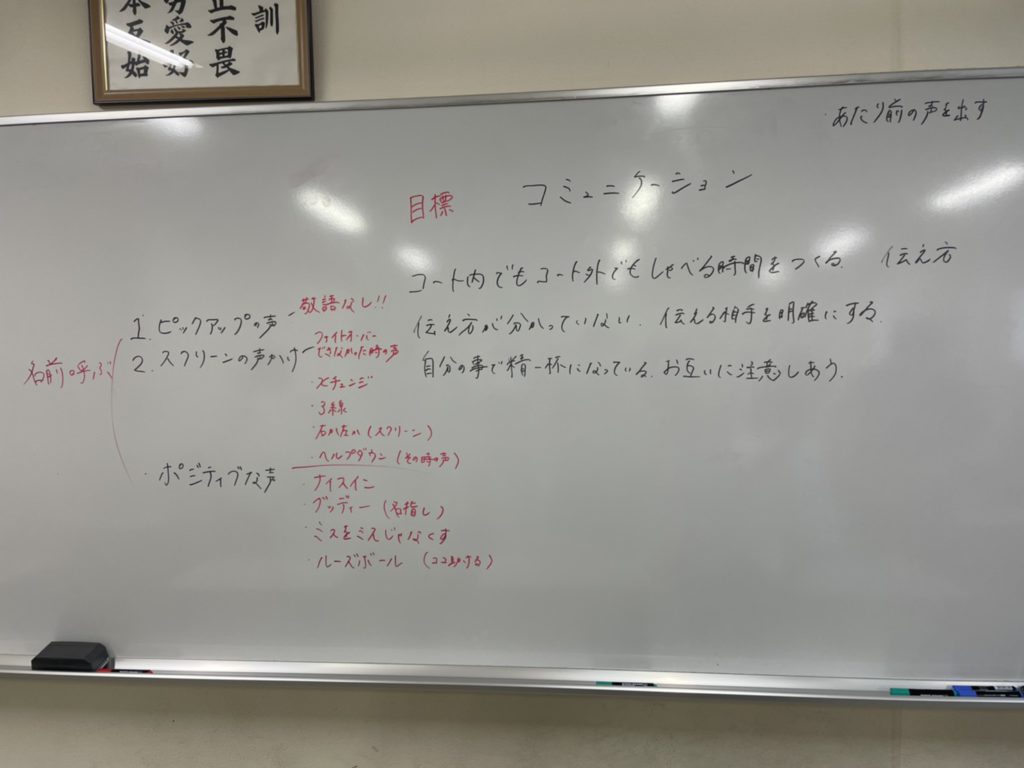 訓
正不畏
労愛好
本反始
あたり前の声を出す
目標 コミュニケーション
コート内でもコート外でもしゃべる時間をつくる. 伝え方
伝え方が分かっていない. 伝える相手を明確にする.
自分の事で精一杯になっている. お互いに注意しあう.
名前呼ぶ
1. ピックアップの声 敬語なし!!
2. スクリーンの声かけ ファイトオーバー
できなかった時の声
・Xチェンジ
・3線
・右か左か(スクリーン)
・ヘルプダウン(その時の声)
・ポジティブな声
・ナイスイン
・グッディー(名指し)
・ミスをミスじゃなくす
・ルーズボール